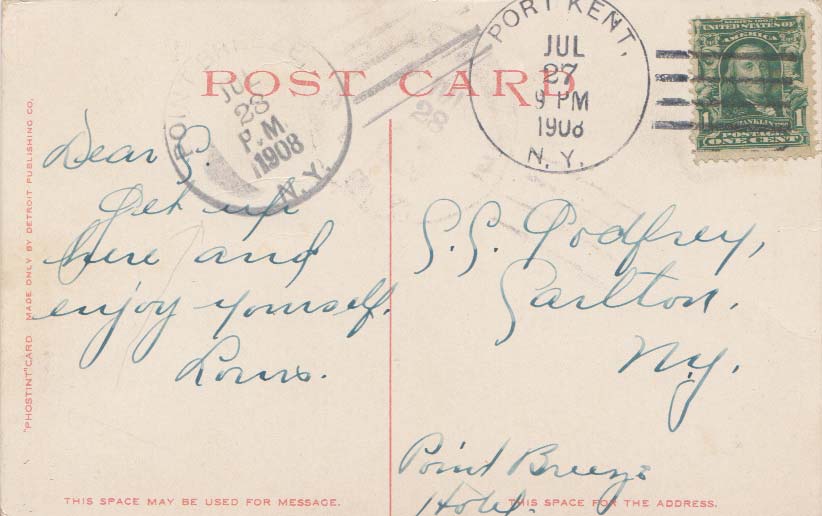 POST CARD
PORT KENT,
JUL
27
9 PM
1908
N. Y.
JUL
28
P.M.
1908
N. Y.
28
SERIES 1902
UNITED STATES OF
AMERICA
FRANKLIN
1 POSTAGE 1
ONE CENT
Dear G.
Get up
here and
enjoy yourself.
Louis.
G. G. Godfrey,
Carlton.
N.Y.
Point Breeze
Hotel.
"PHOSTINT" CARD MADE ONLY BY DETROIT PUBLISHING CO.
THIS SPACE MAY BE USED FOR MESSAGE.
THIS SPACE FOR THE ADDRESS.